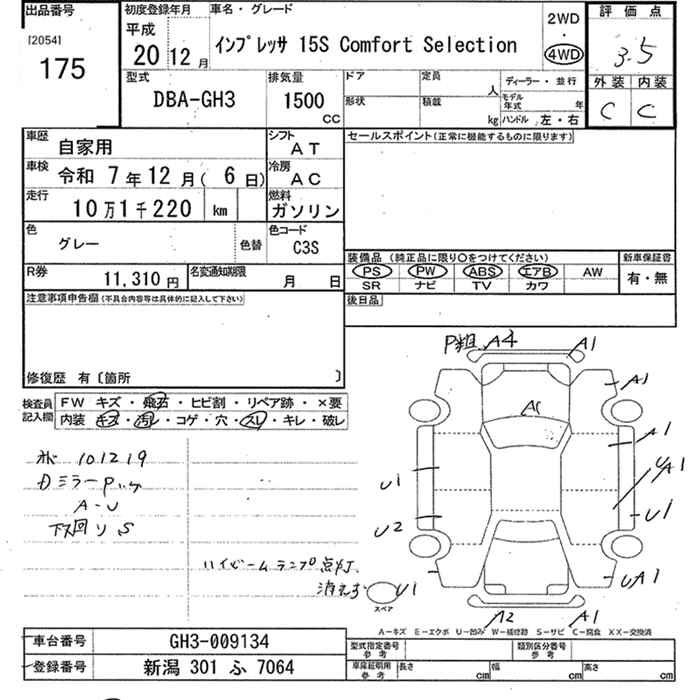 出品番号
[2054]
175
初度登録年月
平成
20 12 月
車名・グレード
インプレッサ 15S Comfort Selection
2WD
・
4WD
評価点
3.5
外装 内装
C C
型式
DBA-GH3
排気量
1500
CC
ドア
定員
人
形状
積載
kg
ディーラー・並行
モデル年式
年
ハンドル 左・右
車歴
自家用
シフト
AT
車検
令和 7年12月( 6日)
冷房
AC
走行
10万1千220 km
燃料
ガソリン
色
グレー
色替
色コード
C3S
R券
11,310 円
名変通知期限
月 日
セールスポイント(正常に機能するものに限ります)
装備品 (純正品に限り○をつけてください)
PS PW ABS エアB AW
SR ナビ TV カワ
新車保証書
有・無
後日品
注意事項申告欄(不具合内容等は具体的に記入して下さい)
修復歴 有〔箇所 〕
検査員
記入欄
FW キズ・飛石・ヒビ割・リペア跡・×要
内装 キズ・汚レ・コゲ・穴・スレ・キレ・破レ
101219
ミラー
A-U
下回り S
ハイビームランプ点灯
消えず
P粗 A4
A1
A1
A1
U1
U2
U1
U1
UA1
A2
A1
スペア
A-キズ E-エクボ U-凹み W-補修跡 S-サビ C-腐食 XX-交換済
車台番号
GH3-009134
登録番号
新潟 301 ふ 7064
型式指定番号
参考
類別区分番号
参考
車庫証明用
参考
長さ
cm
幅
cm
高さ
cm